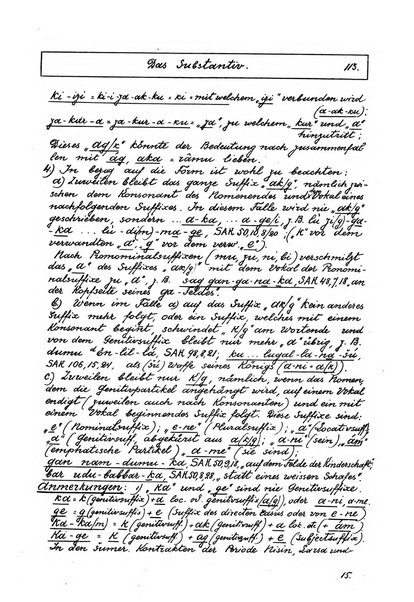 Das Substantiv. 113.
ki-izi = ki-i-za-ak-ku = ki = mit welchem „izi" verbunden wird
(a-ak-ku);
za-kur-a = za-kur-a-ku = „za", zu welchem „kur" und „a"
hinzutritt;
Dieses „ag/k" könnte der Bedeutung nach zusammenfal
len mit ag, aka = râmu lieben.
4.) In bezug auf die Form ist wohl zu beachten:
a) Zuweilen bleibt das ganze Suffix „ak/g", nämlich zwi-
schen dem Konsonant des Nomenendes und Vokal eines
nachfolgenden Suffixes. In diesem Falle wird nie „ak/g"
geschrieben, sondern ... a-ka, ... a-ge/i, z.B.
ka ... -ma-ge, SAK, 50,10,8/20 : („k" vor dem
verwandten „a", „g" vor dem verw. „e").
Nach Pronominalsuffixen (mu, zu, ni, bi) verschmilzt
das „a" des Suffixes „ak/g" mit dem Vokal der Pronomi-
nalsuffixe zu „a", z.B. sag gan-ga-na-ka, SAK 48,7,18, an
der Kopfseite seines Ga-Feldes".
b) Wenn im Falle a) auf das Suffix „ak/g" kein anderes
Suffix mehr folgt, oder ein Suffix, welches mit einem
Konsonant beginnt, schwindet „k/g" am Wortende und
von dem Genitivsuffix bleibt nur mehr „a" übrig, z.B.
dumu En-lil-lá, SAK 98,8,21; ku ... lugal-la-na-šú,
SAK 106,15,21, als (šú) Waffe seines Königs (a-ni-a/k).
c) Zuweilen bleibt nur k/g, nämlich, wenn das Nomen,
dem die Genitivpartikel angehängt wird, auf einen Vokal
endigt (zuweilen auch nach Konsonanten) und ein mit
einem Vokal beginnendes Suffix folgt. Diese Suffixe sind:
„e" (Nominalsuffix); „e-ne" (Pluralsuffix); „a" (Locativsuff.)
„a" (Genitivsuff. abgekürzt aus a/k/g); „a-ni" (sein) „am"
(emphatische Partikel) „a-me" (sie sind);
gan nam-dumu-ka, SAK 50,9,18, „auf dem Felde der Kinderschaft";
bar udu-babbar-ka, SAK 50,8,28, „statt eines weissen Schafes".
Anmerkungen: 1) „Ka" und „ge" sind nie Genitivsuffixe.
ka = k (genitivsuffix) + a loc. od. genitivsuffix a(/g), oder a-ni, a-me.
ge = g (genitivsuffix) + e (Suffix des directen casus oder von e-ne
Ka-ka(m) = k (genitivsuff) + ak (genitivsuff) + a loc. etc (+ am)
Ka-ge = k (genitivsuff.) + ag (genitivsuff) + e (Subjectsuffix).
In den sumer. Kontrakten der Periode Nisin, Larsa und
15.